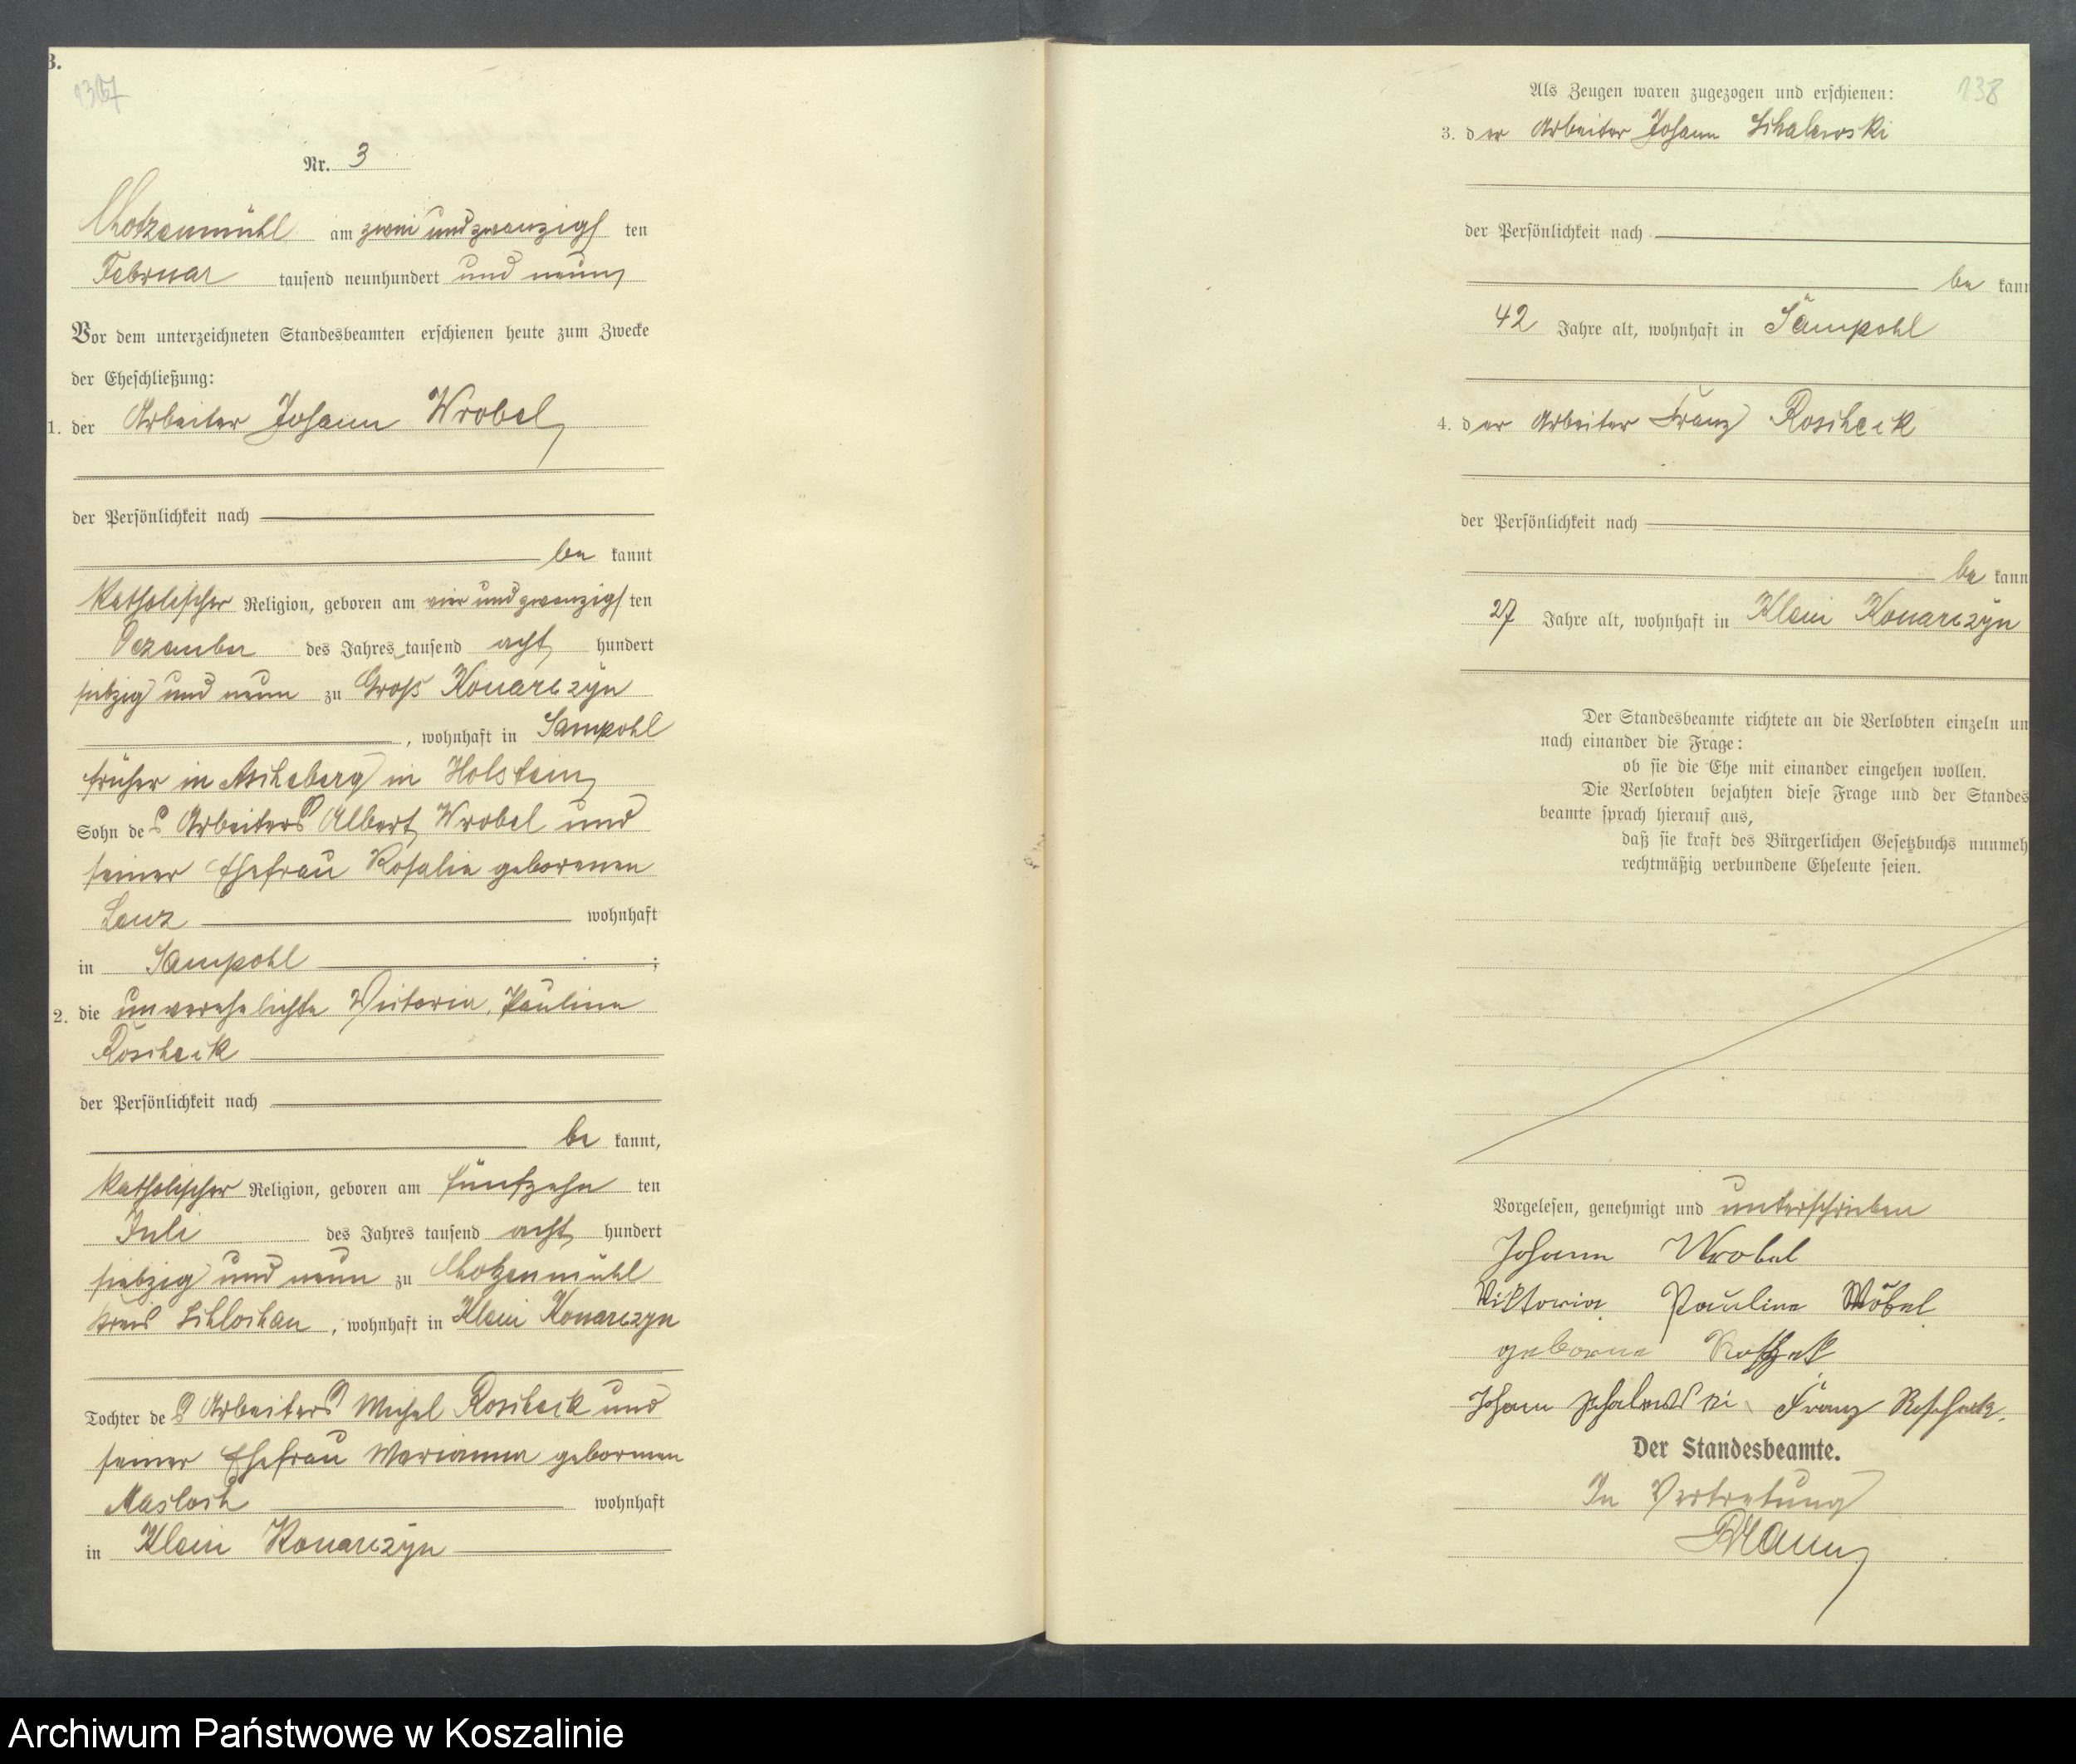 B.
137
Nr. 3
Chotzenmühl am zwei und zwanzigsten
Februar tausend neunhundert und neun
Vor dem unterzeichneten Standesbeamten erschienen heute zum Zwecke
der Eheschließung:
1. der Arbeiter Johann Wrobel
der Persönlichkeit nach
be kannt
katholischer Religion, geboren am vier und zwanzigsten
Dezember des Jahres tausend acht hundert
siebzig und neun zu Groß Konarczyn
, wohnhaft in Sampohl
früher in Ascheberg in Holstein
Sohn des Arbeiters Albert Wrobel und
seiner Ehefrau Rosalie geborenen
wohnhaft
in Sampohl ;
2. die unverehelichte Victoria, Pauline
Roscheck
der Persönlichkeit nach
be kannt,
katholischer Religion, geboren am fünfzehn ten
Juli des Jahres tausend acht hundert
siebzig und neun zu Chotzenmühl
Kreis Schlochau, wohnhaft in Klein Konarczyn
Tochter des Arbeiters Michel Roscheck und
seiner Ehefrau Marianna geborenen
Masloch wohnhaft
in Klein Konarczyn
138
Als Zeugen waren zugezogen und erschienen:
3. der Arbeiter Johann Schalewski
der Persönlichkeit nach
be kann
42 Jahre alt, wohnhaft in Sampohl
4. der Arbeiter Franz Roscheck
der Persönlichkeit nach
be kann
27 Jahre alt, wohnhaft in Klein Konarczyn
Der Standesbeamte richtete an die Verlobten einzeln un
nach einander die Frage:
ob sie die Ehe mit einander eingehen wollen.
Die Verlobten bejahten diese Frage und der Standes
beamte sprach hierauf aus,
daß sie kraft des Bürgerlichen Gesetzbuchs nunmeh
rechtmäßig verbundene Eheleute seien.
Vorgelesen, genehmigt und unterschrieben
Johann Wrobel
Viktoria Pauline Wöbel
geborne
Johann Franz
Der Standesbeamte.
In Vertretung
Archiwum Państwowe w Koszalinie